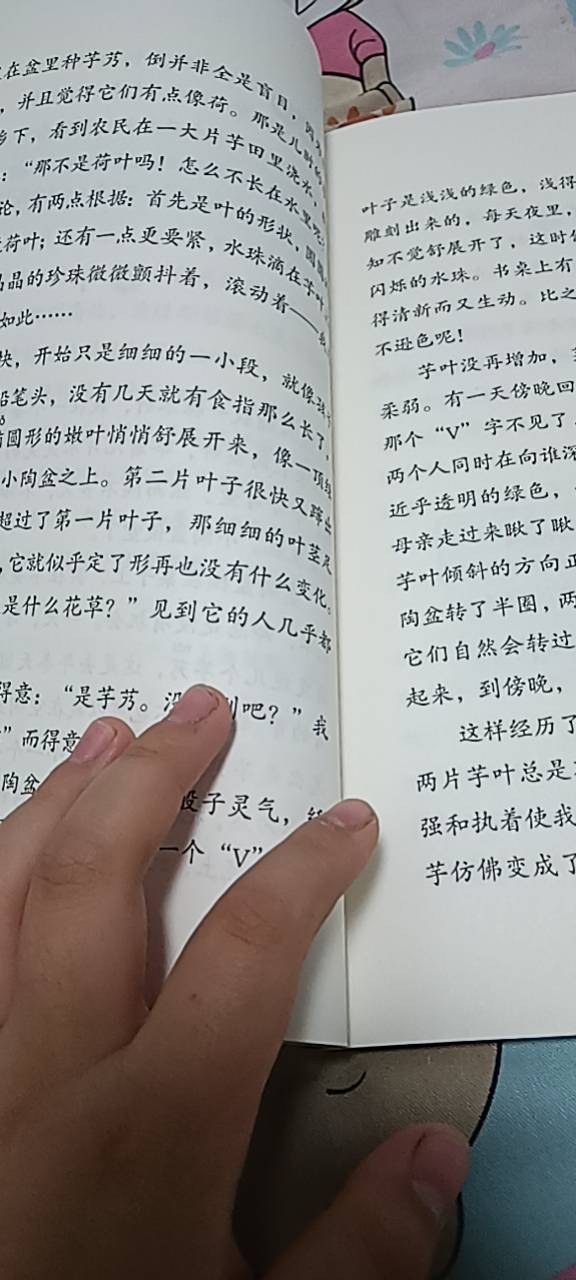 在盆里种芋艿，倒并非全是盲目，
，并且觉得它们有点像荷。那是儿时
乡下，看到农民在一大片芋田里浇水，
：“那不是荷叶吗！怎么不长在水里呢
论，有两点根据：首先是叶的形状，圆圆
荷叶；还有一点更要紧，水珠滴在芋叶
晶的珍珠微微颤抖着，滚动着——
如此……
快，开始只是细细的一小段，就像
铅笔头，没有几天就有食指那么长了，
圆形的嫩叶悄悄舒展开来，像一顶
小陶盆之上。第二片叶子很快又蹿出
超过了第一片叶子，那细细的叶茎
，它就似乎定了形再也没有什么变化。
是什么花草？”见到它的人几乎都
得意：“是芋艿。没 吧？”我
”而得意
陶盆 股子灵气，
一个“V”
叶子是浅浅的绿色，浅得
雕刻出来的，每天夜里，
知不觉舒展开了，这时
闪烁的水珠。书桌上有
得清新而又生动。比之
不逊色呢！
芋叶没再增加，
柔弱。有一天傍晚回
那个“V”字不见了
两个人同时在向谁深
近乎透明的绿色，
母亲走过来瞅了瞅
芋叶倾斜的方向正
陶盆转了半圈，两
它们自然会转过
起来，到傍晚，
这样经历了
两片芋叶总是
强和执着使我
芋仿佛变成了